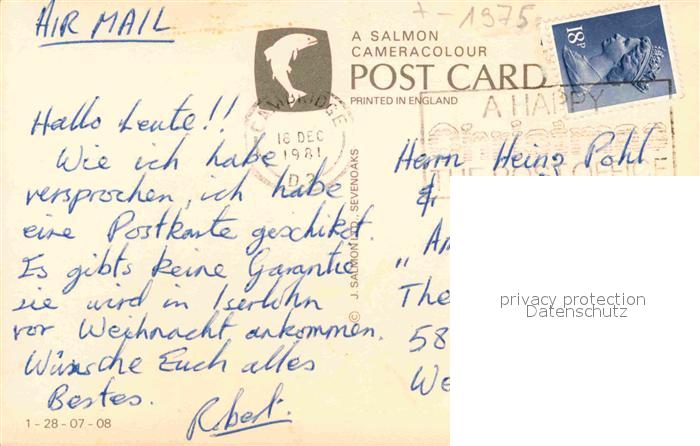 AIR MAIL
+ - 1975
A SALMON
CAMERACOLOUR
POST CARD
PRINTED IN ENGLAND
18P
CAMBRIDGE
18 DEC
1981
A HAPPY
Christmas
THE POST OFFICE
Hallo Leute!!
Wie ich habe
versprochen, ich habe
eine Postkarte geschikt.
Es gibts keine Garantie
sie wird in Iserlohn
vor Weihnacht ankommen.
Wünsche Euch alles
Bestes.
Robert.
1-28-07-08
© J. SALMON LTD., SEVENOAKS
Herrn Heinz Pohl
&
"Am
The
58
We
privacy protection
Datenschutz